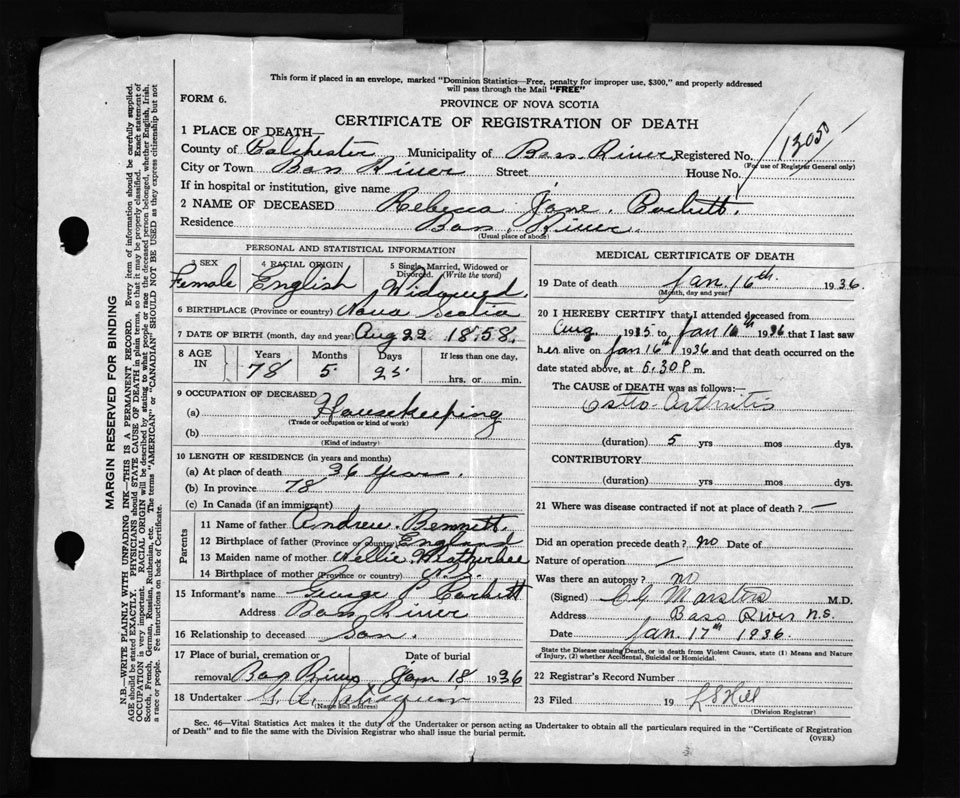 This form if placed in an envelope, marked "Dominion Statistics—Free, penalty for improper use, $300," and properly addressed
will pass through the Mail "FREE"
FORM 6.
PROVINCE OF NOVA SCOTIA
CERTIFICATE OF REGISTRATION OF DEATH
1 PLACE OF DEATH—
County of Colchester Municipality of Bass River Registered No. 1305
(For use of Registrar General only)
City or Town Bass River Street House No.
If in hospital or institution, give name
2 NAME OF DECEASED Rebecca Jane Corbett.
Residence Bass River.
(Usual place of abode)
PERSONAL AND STATISTICAL INFORMATION
3 SEX 4 RACIAL ORIGIN 5 Single, Married, Widowed or Divorced. (Write the word)
Female English Widowed.
6 BIRTHPLACE (Province or country) Nova Scotia
7 DATE OF BIRTH (month, day and year) Aug 22 1858.
8 AGE IN Years Months Days If less than one day,
78 5 25 hrs. or min.
9 OCCUPATION OF DECEASED
(a) Housekeeping
(Trade or occupation or kind of work)
(b)
(Kind of industry)
10 LENGTH OF RESIDENCE (in years and months)
(a) At place of death 36 Years.
(b) In province 78
(c) In Canada (if an immigrant)
Parents
11 Name of father Andrew Bennett.
12 Birthplace of father (Province or country) England
13 Maiden name of mother Nellie
14 Birthplace of mother (Province or country) N.S.
15 Informant's name George P Corbett
Address Bass River
16 Relationship to deceased Son.
17 Place of burial, cremation or removal Bass River Date of burial Jan 18, 1936
18 Undertaker G. A.
(Name and address)
MEDICAL CERTIFICATE OF DEATH
19 Date of death Jan. 16th. 1936.
(Month, day and year)
20 I HEREBY CERTIFY that I attended deceased from
Aug 1935 to Jan 16th 1936 that I last saw
her alive on Jan 16th 1936 and that death occurred on the
date stated above, at 5.30 P m.
The CAUSE OF DEATH was as follows:—
Osteo-Arthritis
(duration) 5 yrs mos dys.
CONTRIBUTORY
(duration) yrs mos dys.
21 Where was disease contracted if not at place of death? —
Did an operation precede death? no Date of
Nature of operation —
Was there an autopsy? no
(Signed) Marsters M.D.
Address Bass River N.S.
Date Jan. 17th 1936.
State the Disease causing Death, or in death from Violent Causes, state (1) Means and Nature
of Injury, (2) whether Accidental, Suicidal or Homicidal.
22 Registrar's Record Number
23 Filed 19 L S Hill
(Division Registrar)
Sec. 46—Vital Statistics Act makes it the duty of the Undertaker or person acting as Undertaker to obtain all the particulars required in the "Certificate of Registration
of Death" and to file the same with the Division Registrar who shall issue the burial permit.
(OVER)
MARGIN RESERVED FOR BINDING
N.B.—WRITE PLAINLY WITH UNFADING INK—THIS IS A PERMANENT RECORD. Every item of information should be carefully supplied.
AGE should be stated EXACTLY. PHYSICIANS should STATE CAUSE OF DEATH in plain terms, so that it may be properly classified. Exact statement of
OCCUPATION is very important. RACIAL ORIGIN will be described by stating to what people or race the deceased person belonged, whether English, Irish,
Scotch, French, German, Russian, Ruthenian, etc. The terms "AMERICAN" or "CANADIAN" SHOULD NOT BE USED as they express citizenship but not
a race or people. See instructions on back of Certificate.